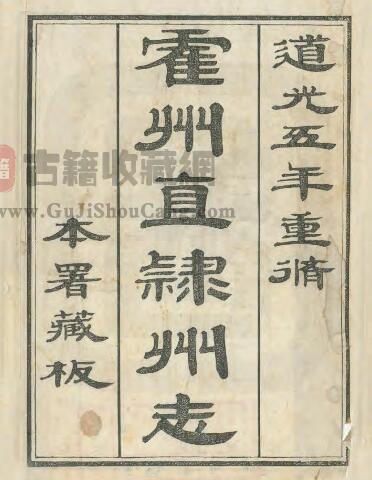 道光五年重脩
霍州直隸州志
本署藏板
古籍收藏網
www.GuJiShouCang.com